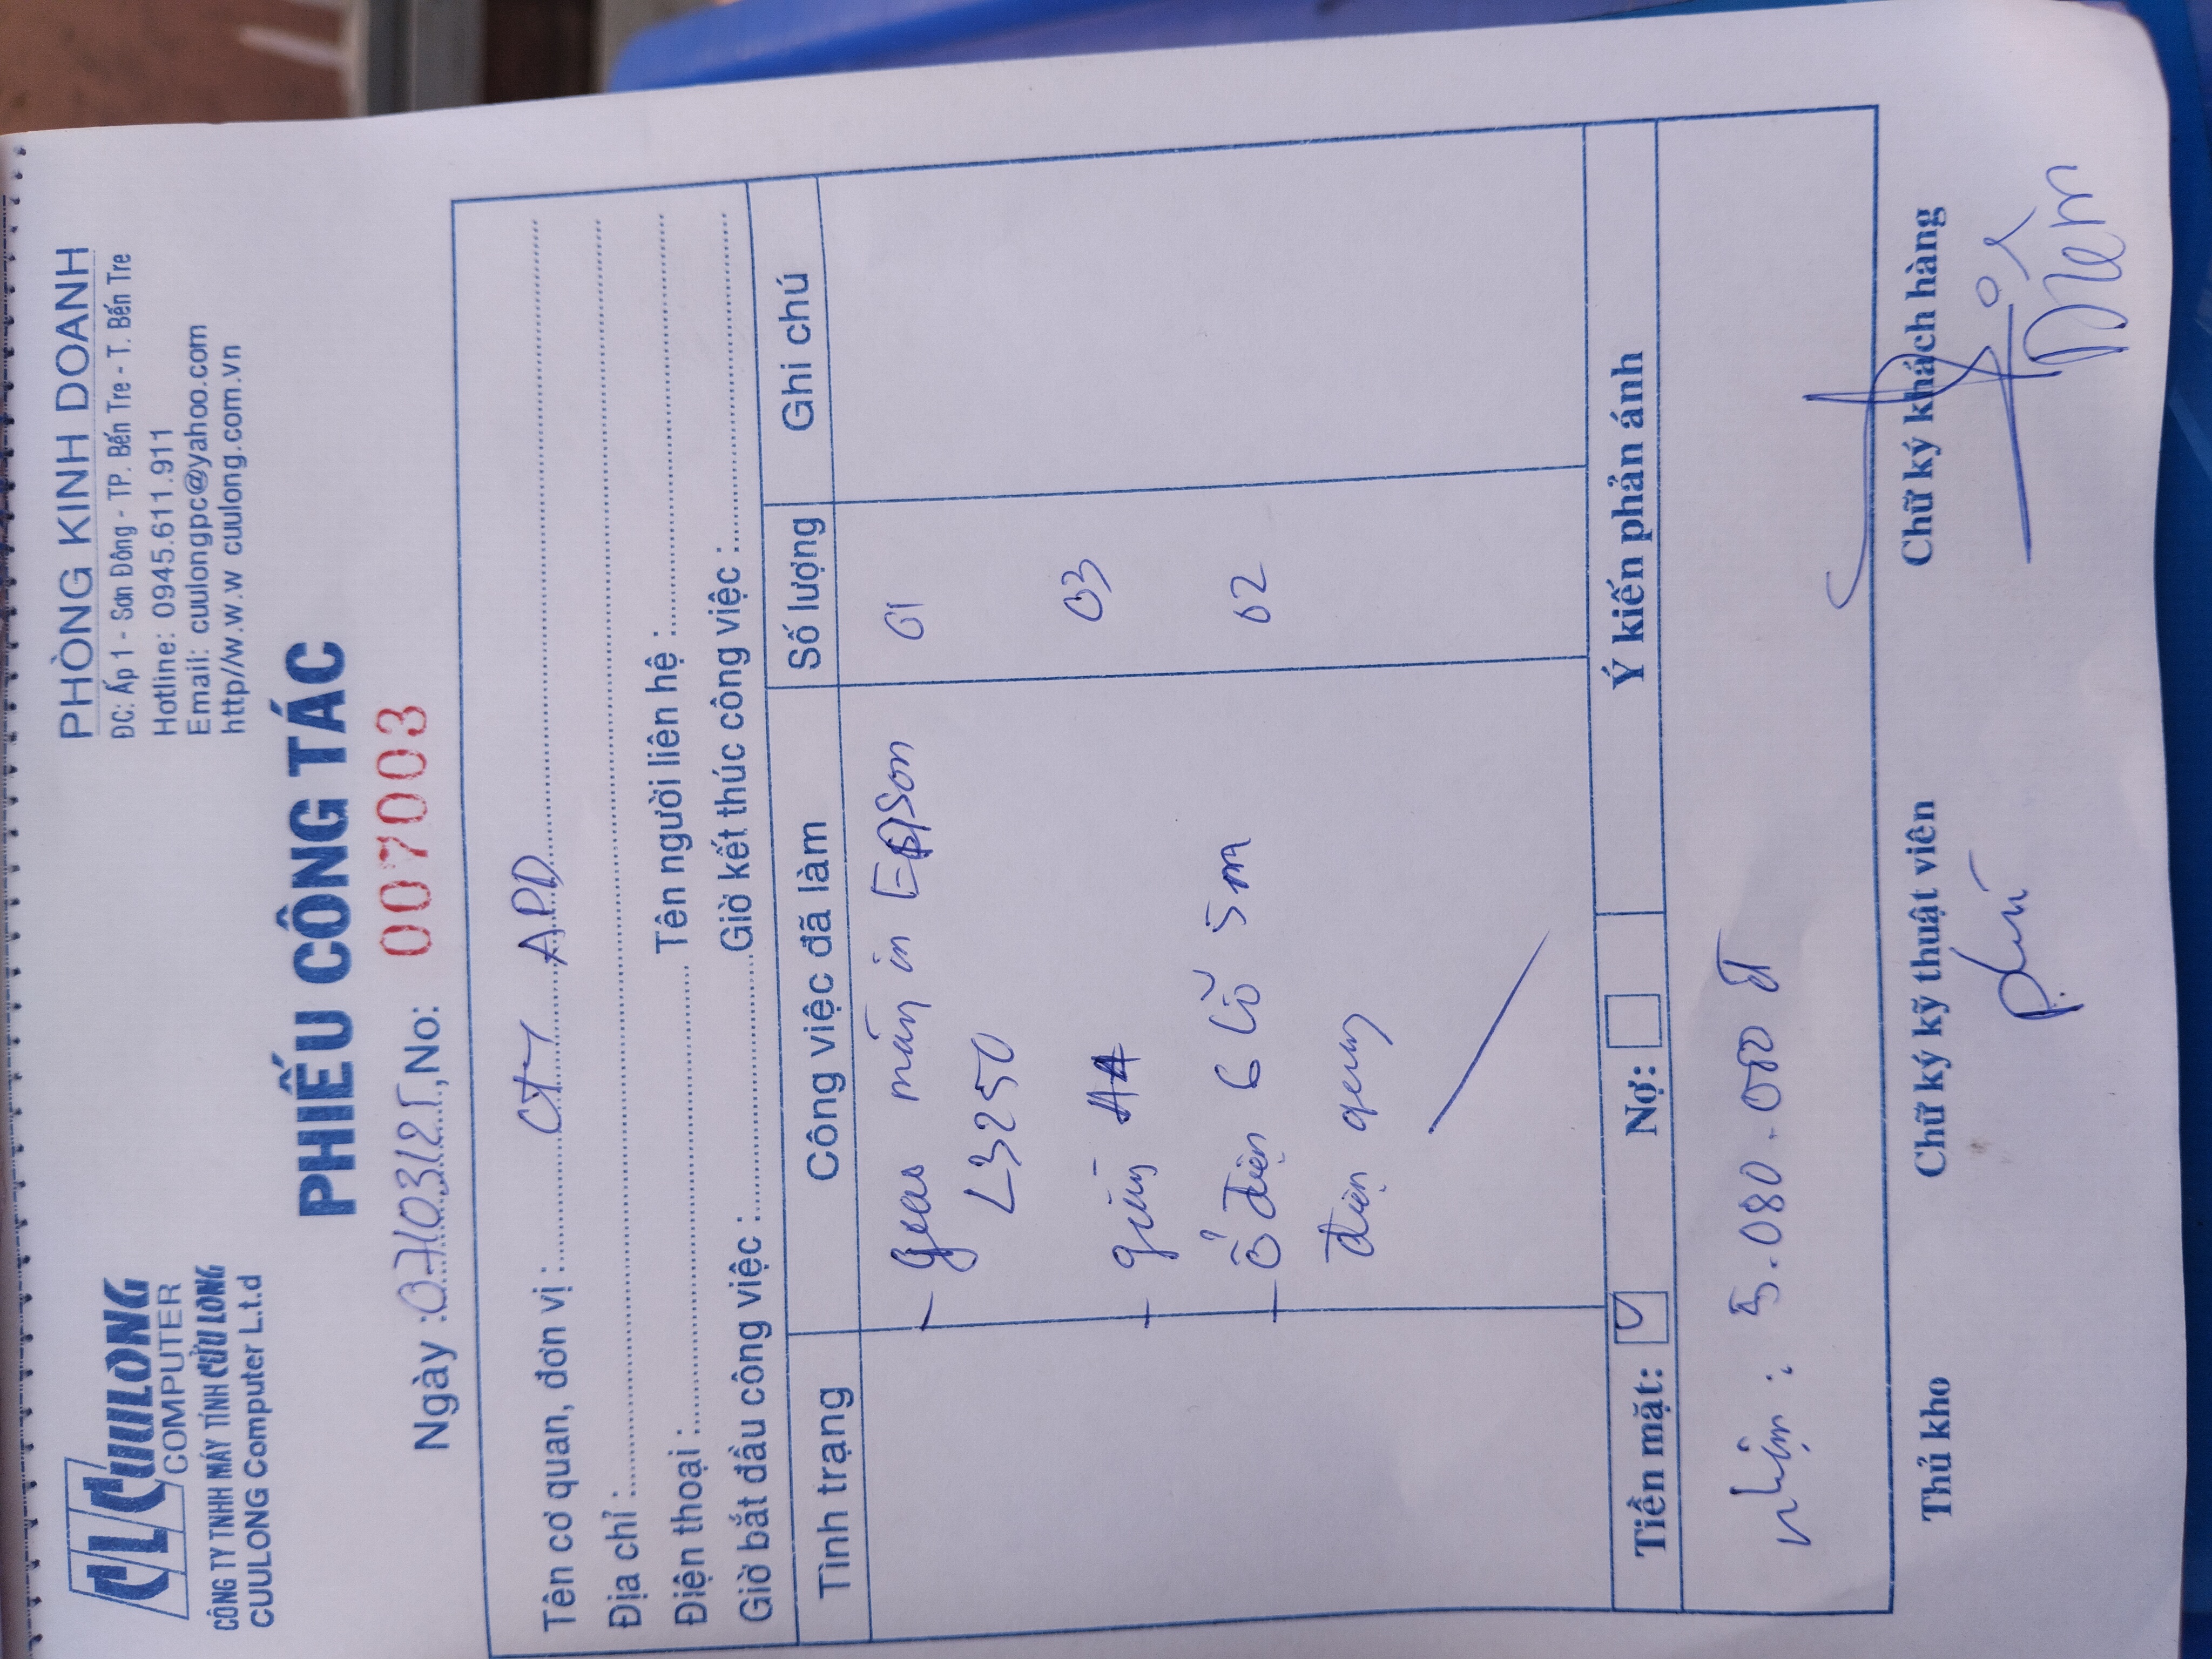 CL CUULONG
COMPUTER
CÔNG TY TNHH MÁY TÍNH CỬU LONG
CUULONG Computer L.t.d
PHÒNG KINH DOANH
ĐC: Ấp 1 - Sơn Đông - TP. Bến Tre - T. Bến Tre
Hotline: 0945.611.911
Email: cuulongpc@yahoo.com
http//w.w.w cuulong.com.vn
PHIẾU CÔNG TÁC
Ngày : No: 007003
Tên cơ quan, đơn vị : CTY APD
Địa chỉ :
Điện thoại : Tên người liên hệ :
Giờ bắt đầu công việc : Giờ kết thúc công việc :
Tình trạng Công việc đã làm Số lượng Ghi chú
- Giao máy in Epson 01
L3250
- giấy A4 03
- ổ điện 6 lỗ 5m 02
điện quang
Tiền mặt: Nợ: Ý kiến phản ánh
nhận : 5.080.000 đ
Thủ kho Chữ ký kỹ thuật viên Chữ ký khách hàng
Phú